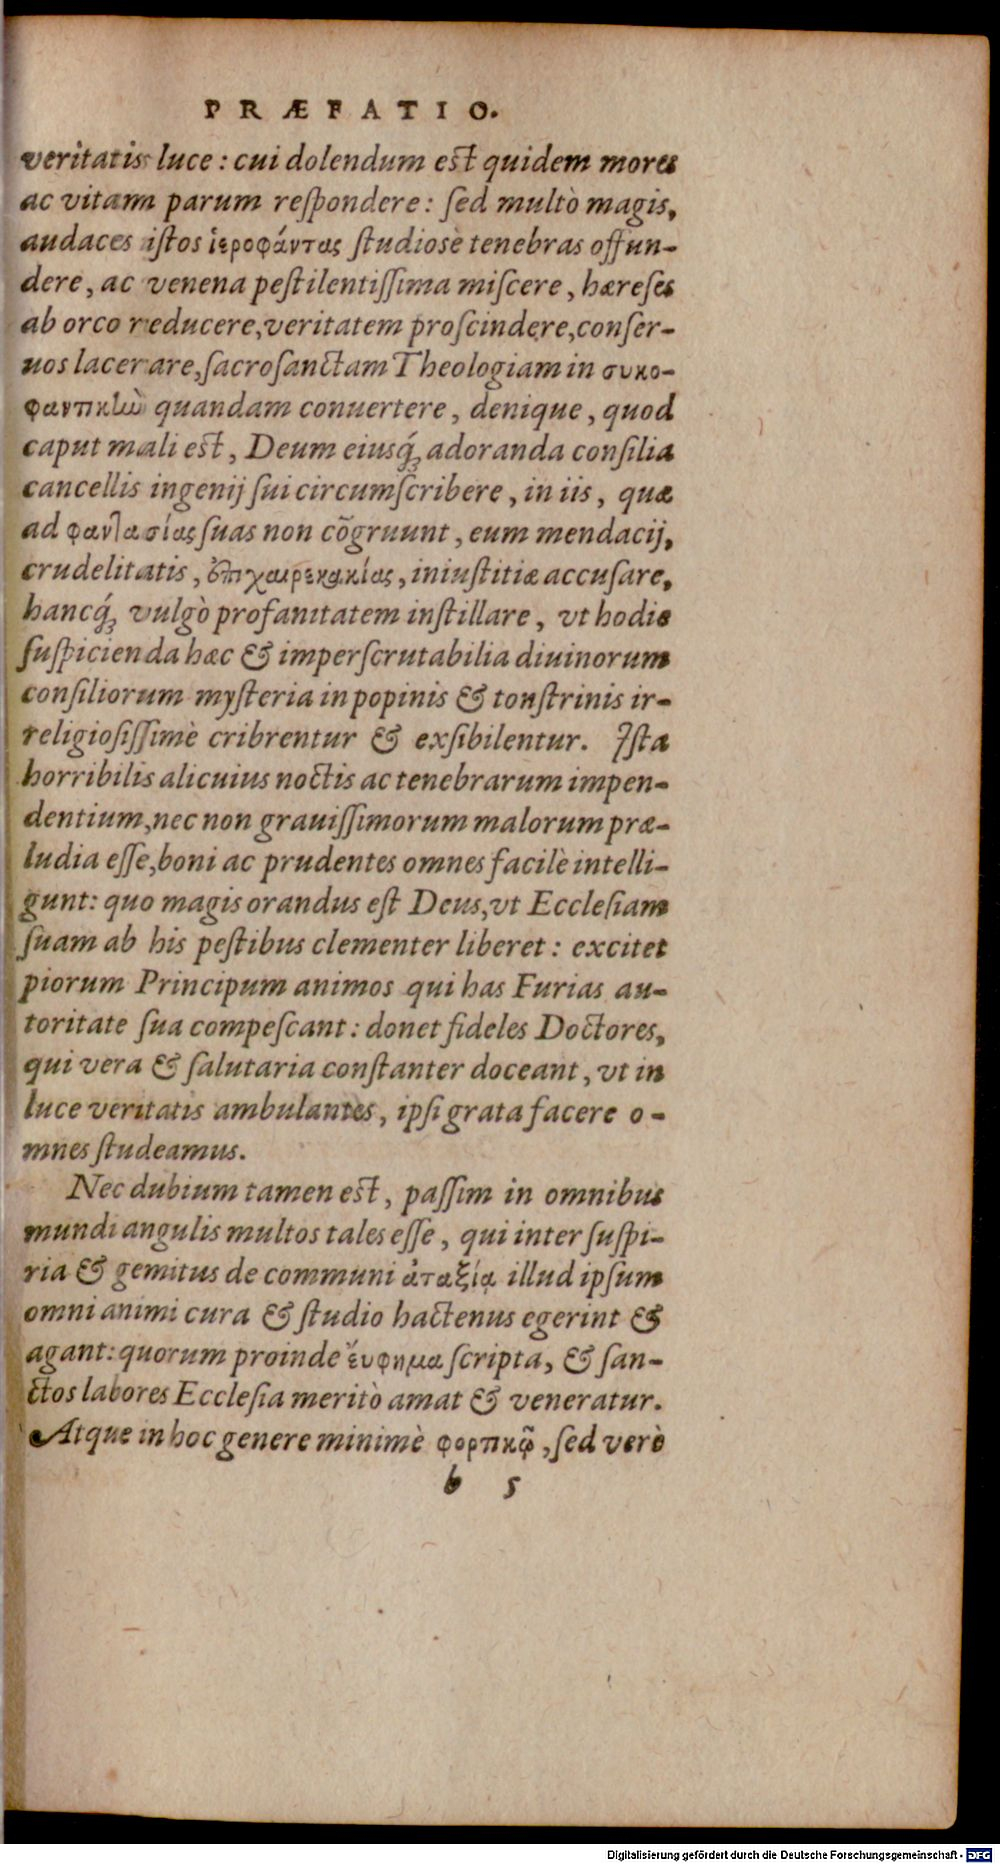 PRÆFATIO.
veritatis luce : cui dolendum est quidem mores
ac vitam parum reſpondere : ſed multò magis,
audaces iſtos ἱεροφάντας ſtudioſè tenebras offun-
dere, ac venena peſtilentiſſima miſcere, hæreſes
ab orco reducere, veritatem proſcindere, conſer-
uos lacerare, ſacroſanctam Theologiam in συκο-
φαντικὴν quandam conuertere, denique, quod
caput mali est, Deum eiusq́ꝫ adoranda conſilia
cancellis ingenij ſui circumſcribere, in iis, quæ
ad φαντασίας ſuas non cõgruunt, eum mendacij,
crudelitatis, ἐπιχαιρεκακίας, iniuſtitiæ accuſare,
hancq́ꝫ vulgò profanitatem inſtillare, vt hodie
ſuſpicienda hæc & imperſcrutabilia diuinorum
conſiliorum myſteria in popinis & tonſtrinis ir-
religioſiſſimè cribrentur & exſibilentur. Iſta
horribilis alicuius noctis ac tenebrarum impen-
dentium, nec non grauiſſimorum malorum præ-
ludia eſſe, boni ac prudentes omnes facilè intelli-
gunt: quo magis orandus eſt Deus, vt Eccleſiam
ſuam ab his peſtibus clementer liberet : excitet
piorum Principum animos qui has Furias au-
toritate ſua compeſcant : donet fideles Doctores,
qui vera & ſalutaria conſtanter doceant, vt in
luce veritatis ambulantes, ipſi grata facere o-
mnes ſtudeamus.
Nec dubium tamen est, paſſim in omnibus
mundi angulis multos tales eſſe, qui inter ſuſpi-
ria & gemitus de communi ἀταξίᾳ illud ipſum
omni animi cura & ſtudio hactenus egerint &
agant: quorum proinde ἔυφημα scripta, & ſan-
ctos labores Eccleſia meritò amat & veneratur.
Atque in hoc genere minimè φορτικῷ, ſed verè
b 5
Digitalisierung gefördert durch die Deutsche Forschungsgemeinschaft - DFG